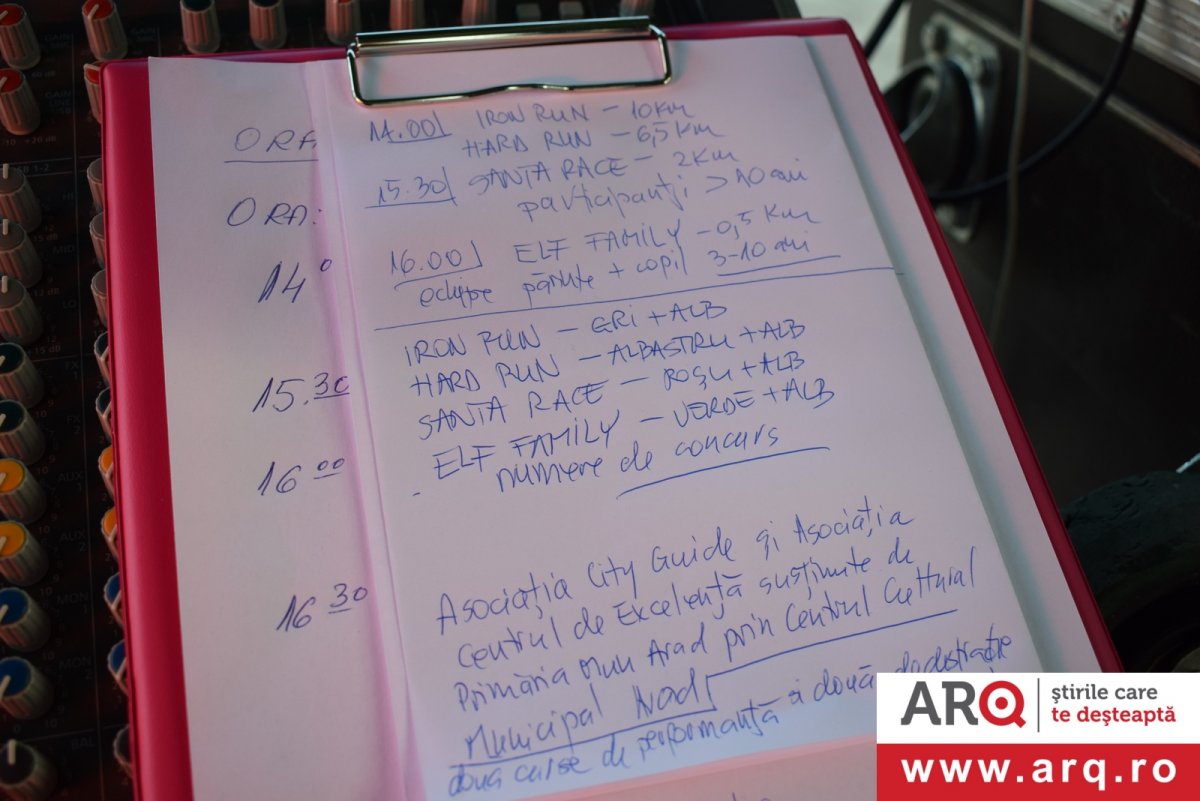 ORA
ORA:
14°
15.30
16 00
16 30
14.00 IRON RUN - 10 Km
HARD RUN - 6,5 Km
15.30 SANTA RACE - 2 Km
participanți > 10 ani
16.00 ELF FAMILY - 0,5 Km
echipe părinte + copil 3-10 ani
IRON RUN - GRI + ALB
HARD RUN - ALBASTRU + ALB
SANTA RACE - ROȘU + ALB
ELF FAMILY - VERDE + ALB
numere de concurs
Asociația City Guide și Asociația
Centrul de Excelență susținute de
Primăria Mun Arad prin Centrul Cultural
Municipal Arad
două curse de performanță și două de distracție
ARQ
știrile care
te deșteaptă
www.arq.ro